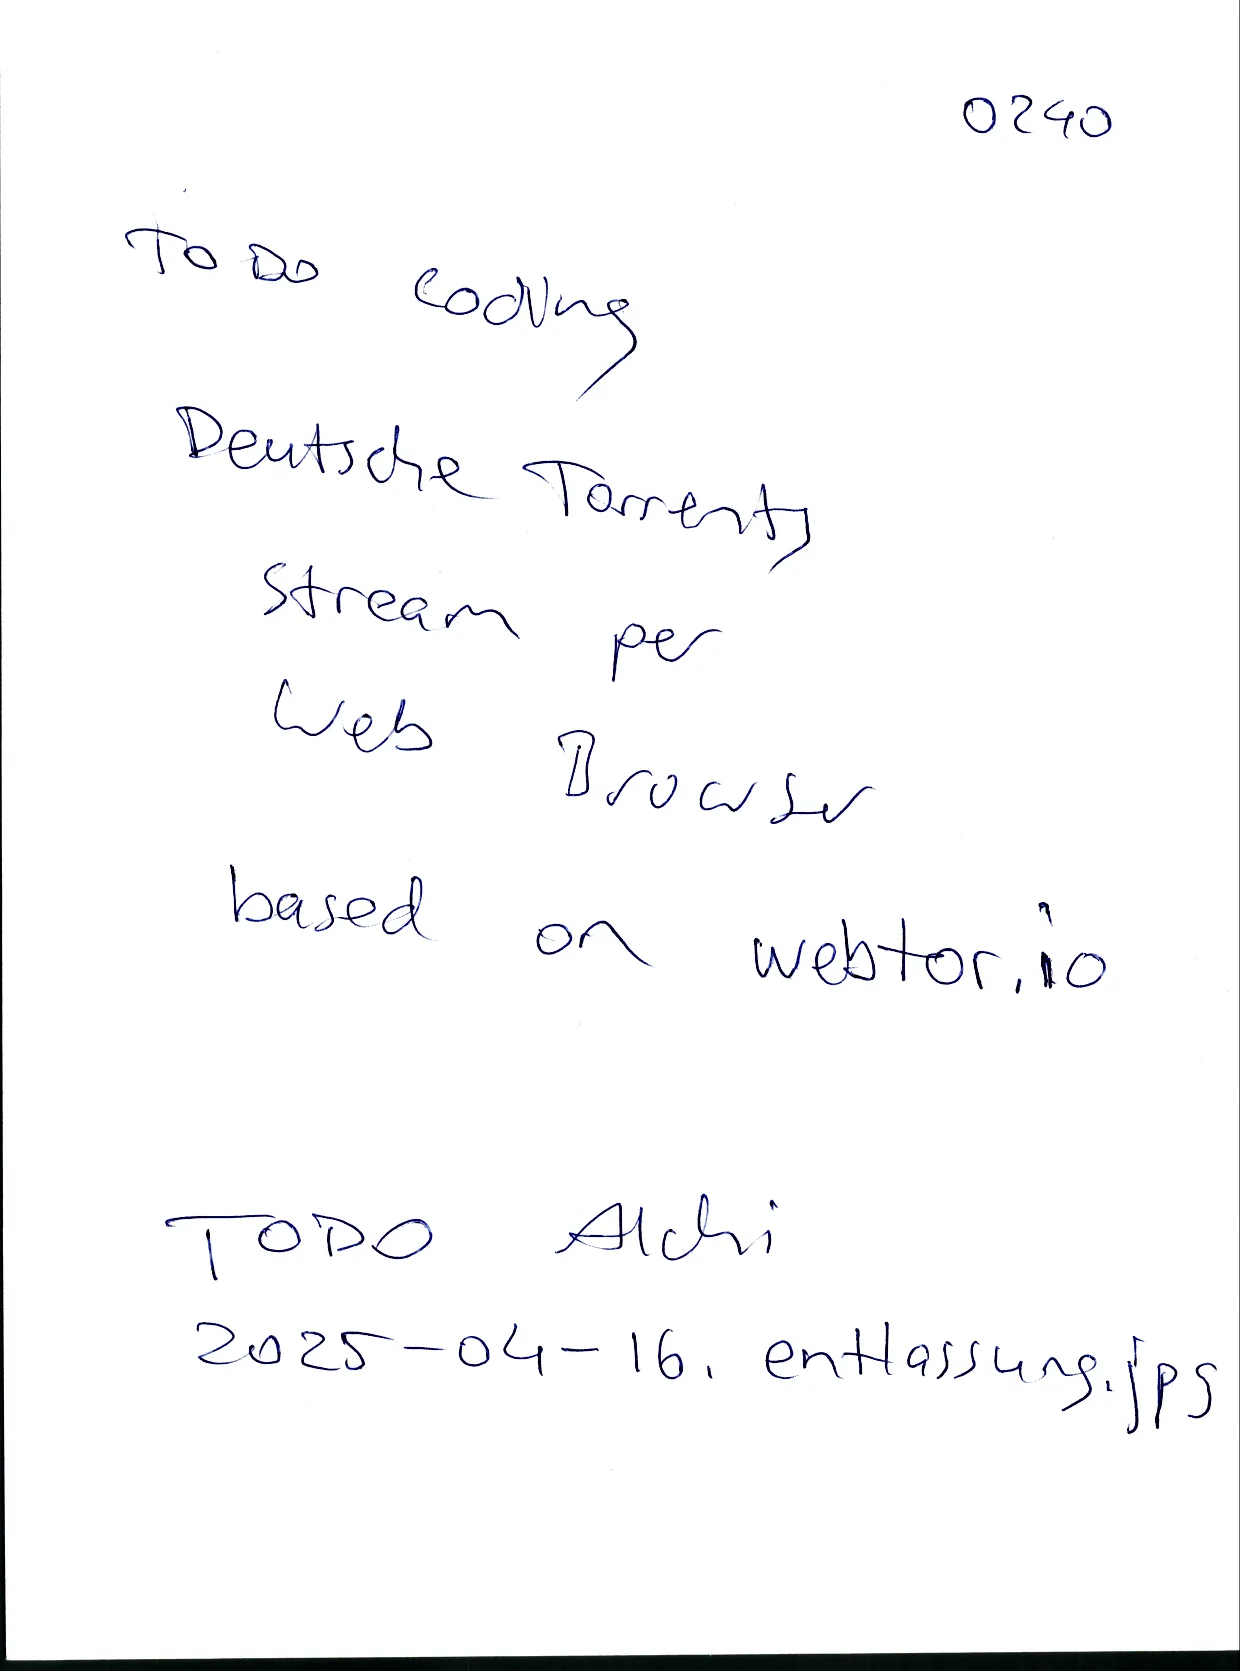 0240
TODO coding
Deutsche Torrents
stream per
Web Browser
based on webtor.io
TODO Alchi
2025-04-16. entlassung.jpg